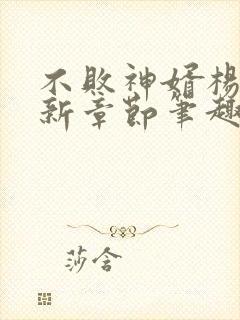 不败神婿杨
新章节笔趣
莎含